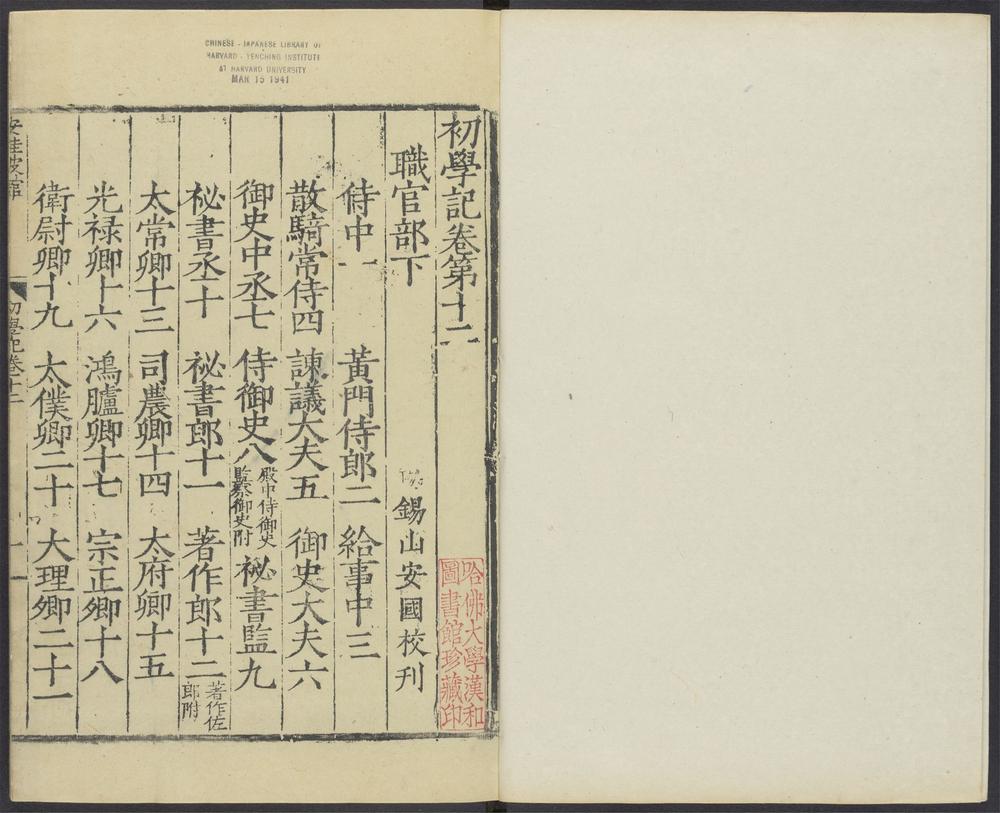 CHINESE - JAPANESE LIBRARY OF
HARVARD - YENCHING INSTITUTE
AT HARVARD UNIVERSITY
MAR 15 1941
初學記卷第十二
職官部下
錫山安國校刊
侍中一 黃門侍郎二 給事中三
散騎常侍四 諫議大夫五 御史大夫六
御史中丞七 侍御史八 殿中侍御史監察御史附 祕書監九
祕書丞十 祕書郎十一 著作郎十二 著作佐郎附
太常卿十三 司農卿十四 太府卿十五
光祿卿十六 鴻臚卿十七 宗正卿十八
衛尉卿十九 太僕卿二十 大理卿二十一
安桂坡館 初學記卷十二 一
哈佛大學漢和
圖書館珍藏印